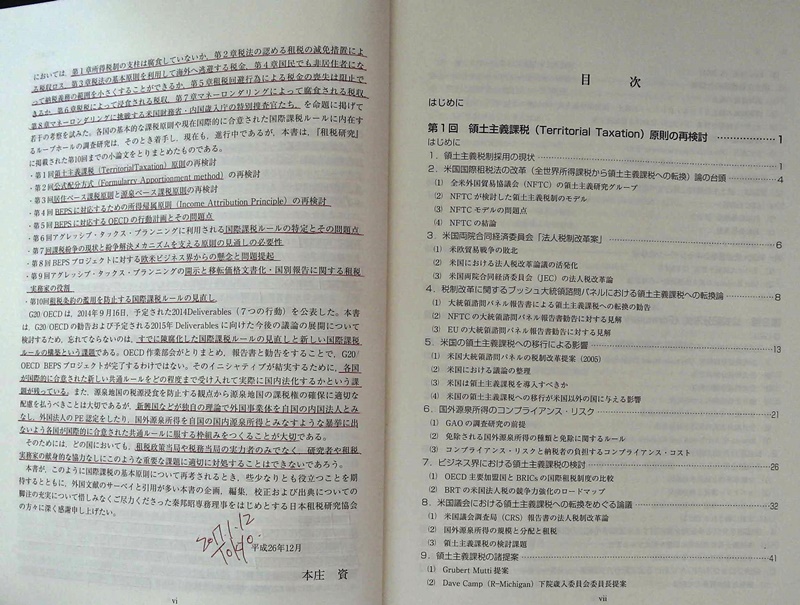 においては，第1章所得税制の支柱は腐食していないか，第2章税法の認める租税の減免措置によ
る税収ロス，第3章税法の基本原則を利用して海外へ逃避する税金，第4章国民でも非居住者にな
って納税義務の範囲を小さくすることができるか，第5章租税回避行為による税金の喪失は阻止で
きるか，第6章脱税によって浸食される税収，第7章マネーロンダリングによって腐食される税収，
第8章マネーロンダリングに挑戦する米国財務省・内国歳入庁の特別捜査官たち，を命題に掲げて
若干の考察を試みた。各国の基本的な課税原則や現在国際的に合意された国際課税ルールに内在す
るループホールの調査研究は，そのとき着手し，現在も，進行中であるが，本書は，『租税研究』
に掲載された第10回までの小論文をとりまとめたものである。
・第1回領土主義課税（TerritorialTaxation）原則の再検討
・第2回公式配分方式（Formularry Apportionment method）の再検討
・第3回居住ベース課税原則と源泉ベース課税原則の再検討
・第4回BEPSに対応するための所得帰属原則（Income Attribution Principle）の再検討
・第5回BEPSに対応するOECDの行動計画とその問題点
・第6回アグレッシブ・タックス・プランニングに利用される国際課税ルールの特定とその問題点
・第7回課税紛争の現状と紛争解決メカニズムを支える原則の見直しの必要性
・第8回BEPSプロジェクトに対する欧米ビジネス界からの懸念と問題提起
・第9回アグレッシブ・タックス・プランニングの開示と移転価格文書化・国別報告に関する租税
実務家の役割
・第10回租税条約の濫用を防止する国際課税ルールの見直し
G20/OECDは，2014年9月16日，予定された2014Deliverables（7つの行動）を公表した。本書
は，G20/OECDの勧告および予定される2015年Deliverablesに向けた今後の議論の展開について
検討するため，忘れてならないのは，すでに陳腐化した国際課税ルールの見直しと新しい国際課税
ルールの構築という課題である。OECD作業部会がとりまとめ，報告書と勧告をすることで，G20/
OECD BEPSプロジェクトが完了するわけではない。そのイニシャティブが結実するために，各国
が国際的に合意された新しい共通ルールをどの程度まで受け入れて実際に国内法化するかという課
題が残っている。また，源泉地国の税源浸食を防止する観点から源泉地国の課税権の確保に適切な
配慮を払うべきことは大切であるが，新興国などが独自の理論で外国事業体を自国の内国法人とみ
なし，外国法人のPE認定をしたり，国外源泉所得を自国の国内源泉所得とみなすような暴挙に出
ないよう各国が国際的に合意された共通ルールに服する枠組みをつくることが大切である。
そのためには，どの国においても，租税政策当局や税務当局の実力者のみでなく，研究者や租税
実務家の献身的な協力なしにこのような重要な課題に適切に対処することはできないであろう。
本書が，このように国際課税の基本原則について再考されるとき，些少なりとも役立つことを期
待するとともに，外国文献のサーベイと引用が多い本書の企画，編集，校正および出典についての
脚注の充実について惜しみなくご尽力くださった秦邦昭専務理事をはじめとする日本租税研究協会
の方々に深く感謝申し上げたい。
2017.1.12
TOKYO.
平成26年12月
本庄 資
vi
目 次
はじめに
第1回 領土主義課税（Territorial Taxation）原則の再検討 ……………… 1
はじめに
1．領土主義税制採用の現状 …………………… 2
2．米国国際租税法の改革（全世界所得課税から領土主義課税への転換）論の台頭 …… 4
(1) 全米外国貿易協議会（NFTC）の領土主義研究グループ
(2) NFTCが検討した領土主義税制のモデル
(3) NFTCモデルの問題点
(4) NFTCの結論
3．米国両院合同経済委員会「法人税制改革案」 …………………… 6
(1) 米欧貿易戦争の敗北
(2) 米国における法人税改革論議の活発化
(3) 米国両院合同経済委員会（JEC）の法人税改革論
4．税制改革に関するブッシュ大統領諮問パネルにおける領土主義課税への転換論 …… 8
(1) 大統領諮問パネル報告書による領土主義課税への転換の勧告
(2) NFTCの大統領諮問パネル報告書勧告に対する見解
(3) EUの大統領諮問パネル報告書勧告に対する見解
5．米国の領土主義課税への移行による影響 …………………… 13
(1) 米国大統領諮問パネルの税制改革提案（2005）
(2) 米国における議論の整理
(3) 米国は領土主義課税を導入すべきか
(4) 米国の領土主義課税への移行が米国以外の国に与える影響
6．国外源泉所得のコンプライアンス・リスク …………………… 21
(1) GAOの調査研究の前提
(2) 免除される国外源泉所得の種類と免除に関するルール
(3) コンプライアンス・リスクと納税者の負担するコンプライアンス・コスト
7．ビジネス界における領土主義課税の検討 …………………… 26
(1) OECD主要加盟国とBRICsの国際租税制度の比較
(2) BRTの米国法人税の競争力強化のロードマップ
8．米国議会における領土主義課税への転換をめぐる論議 …………………… 32
(1) 米国議会調査局（CRS）報告書の法人税制改革論
(2) 国外源泉所得の規模と分配と租税
(3) 領土主義課税の検討課題
9．領土主義課税の諸提案 …………………… 41
(1) Grubert Mutti提案
(2) Dave Camp（R-Michigan）下院歳入委員会委員長提案
vii